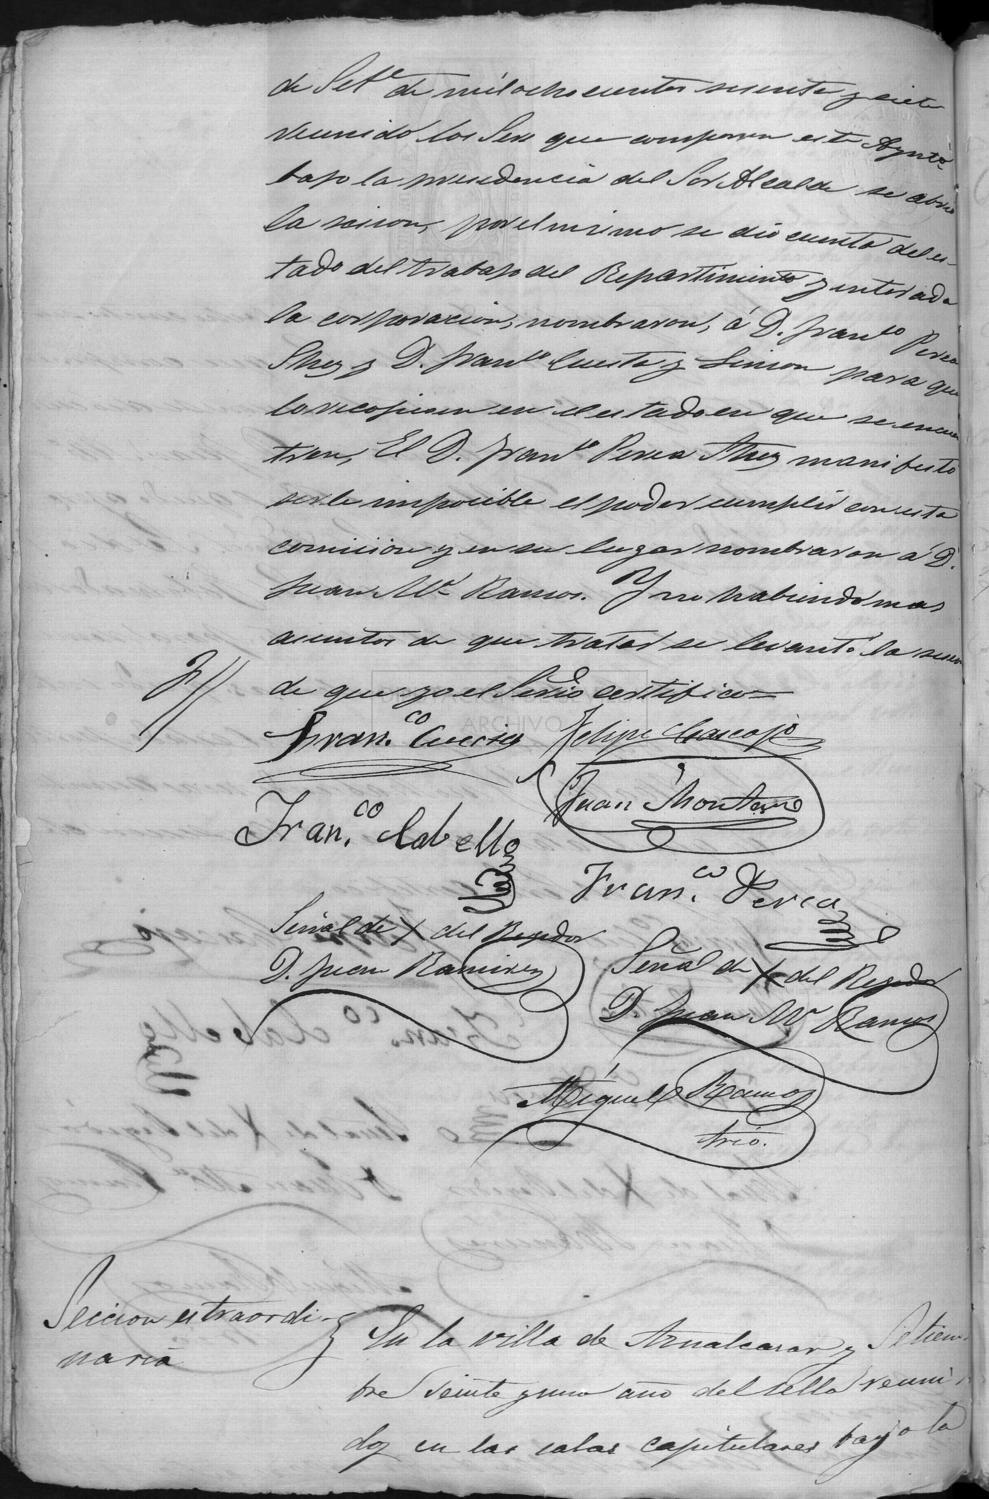 de Set.e de mil ochocientos sesenta y siete
reunido los Sres que componen este Aynto
bajo la presidencia del Sor Alcalde se abrio
la secion, por el mismo se dio cuenta del es-
tado del trabajo del Repartimiento y enterada
la corporacion, nombraron, á D. Fran.co Perea
y D. Fran.co Cuesta y Simon para que
lo recopiasen en el estado en que se encuen
tran, El D. Fran.co Perea manifesto
serle imposible el poder cumplir con esta
comision y en su lugar nombraron á D.
Juan M.a Ramos. Y no habiendo mas
asuntos de que tratar se levantó la secion
de que yo el Serio certifico=
DIPUTACION DE
ARCHIVO
Fran.co Felipe Cascajo
Juan Montero
Fran.co Cabello
Fran.co Perea
Señal de X del Regidor
D. Juan Ramirez
Señal de X del Regidor
D. Juan M.a Ramos
Miguel Ramos
Srio.
Secion estraordi-
naria
En la villa de Aznalcazar y Setiem-
bre veinte y uno año del sello reuni-
dos en las salas capitulares bajo la